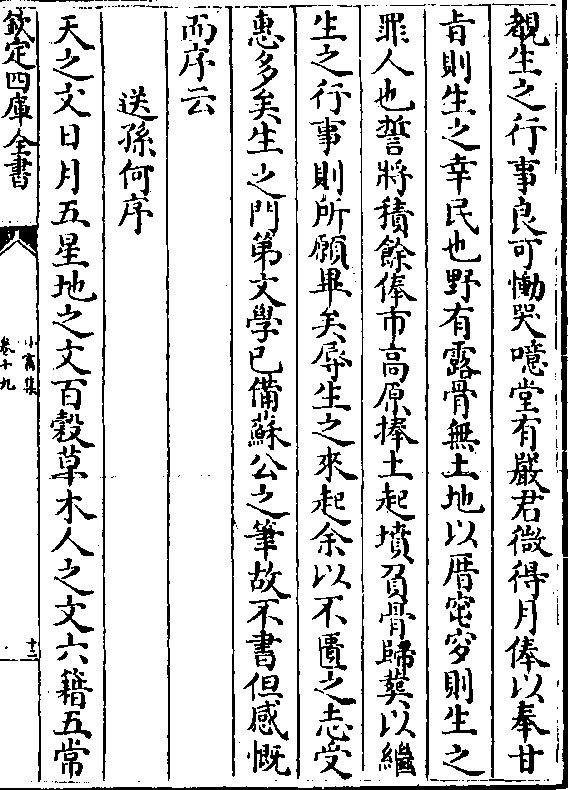 覩生之行事良可慟哭噫堂有嚴君微得月俸以奉甘
旨則生之幸民也野有露骨無土地以厝窀穸則生之
罪人也誓將積餘俸市高原捧土起墳負骨歸葬以繼
生之行事則所願畢矣辱生之來起余以不匱之志受
惠多矣生之門第文學已備蘇公之筆故不書但感慨
而序云
送孫何序
天之文日月五星地之文百穀草木人之文六籍五常
欽定四庫全書
小畜集
卷十九
十二